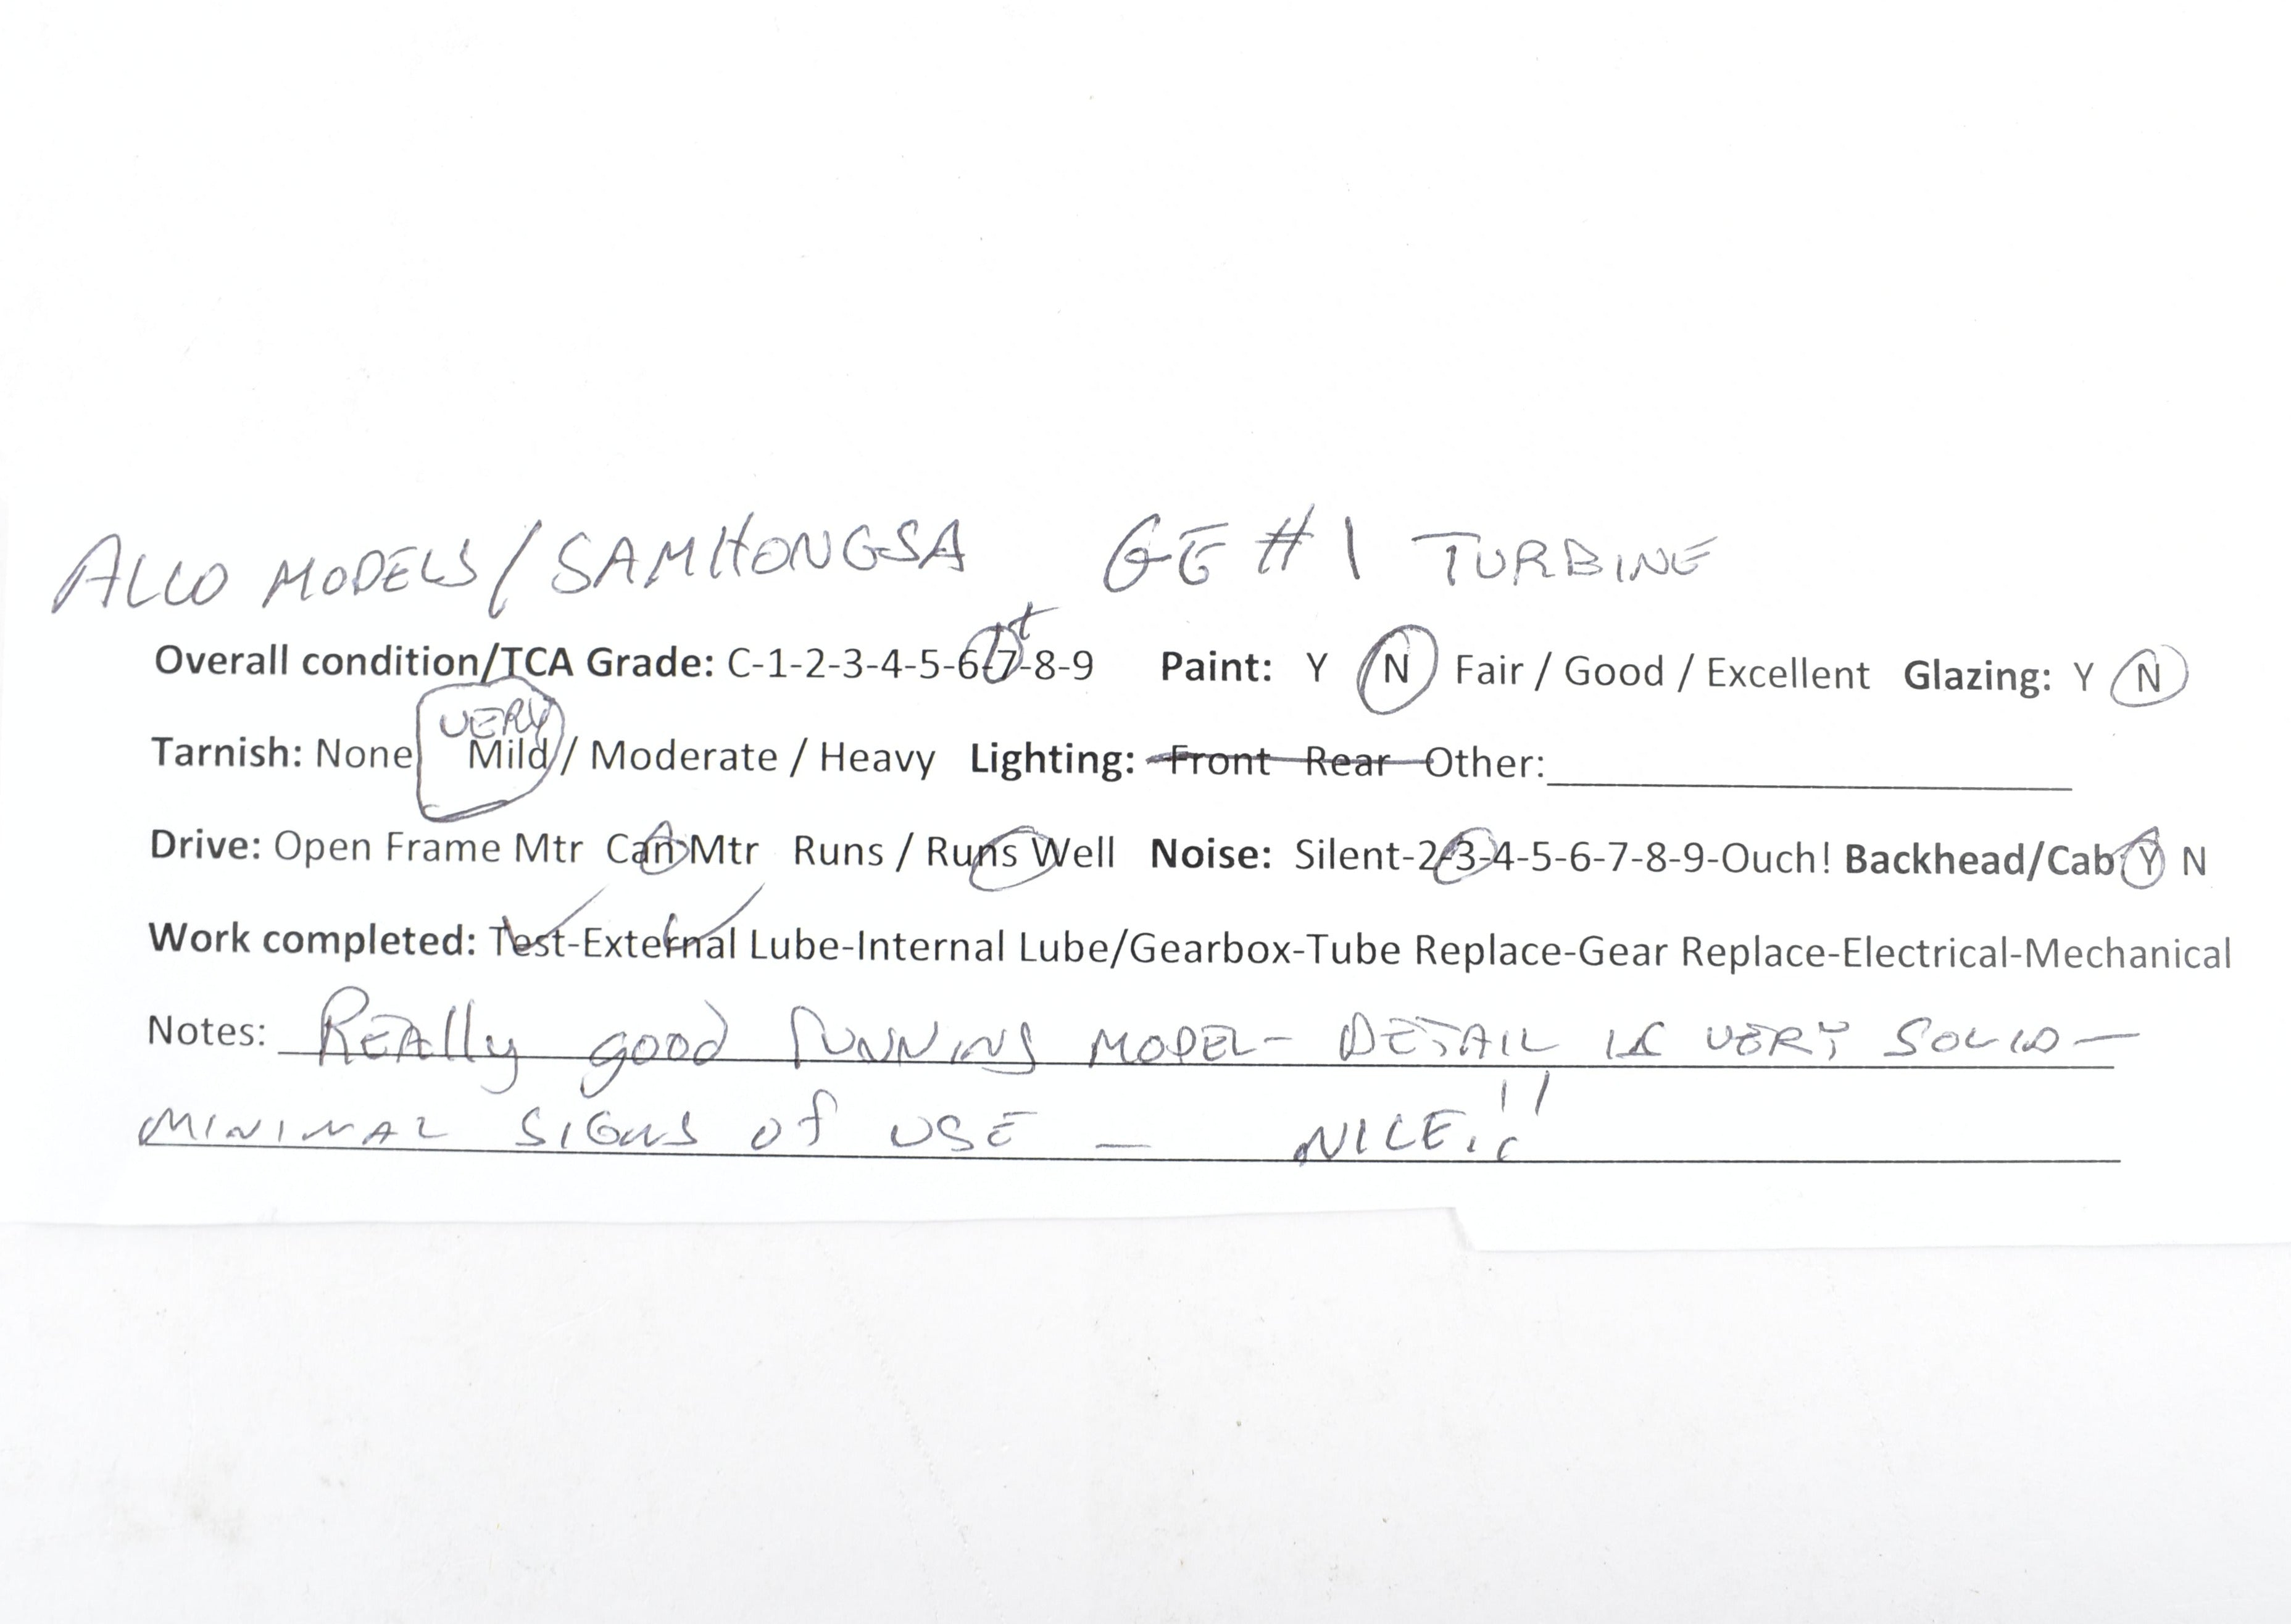 ALCO MODELS/SAMHONGSA GE #1 TURBINE
Overall condition/TCA Grade: C-1-2-3-4-5-6-7+-8-9 Paint: Y N Fair / Good / Excellent Glazing: Y N
VERY
Tarnish: None Mild / Moderate / Heavy Lighting: Front Rear Other:
Drive: Open Frame Mtr Can Mtr Runs / Runs Well Noise: Silent-2-3-4-5-6-7-8-9-Ouch! Backhead/Cab Y N
Work completed: Test-External Lube-Internal Lube/Gearbox-Tube Replace-Gear Replace-Electrical-Mechanical
Notes: REAlly good RUNNING MODEL- DETAIL IS VERY SOLID-
MINIMAL SIGNS Of USE - NICE!!